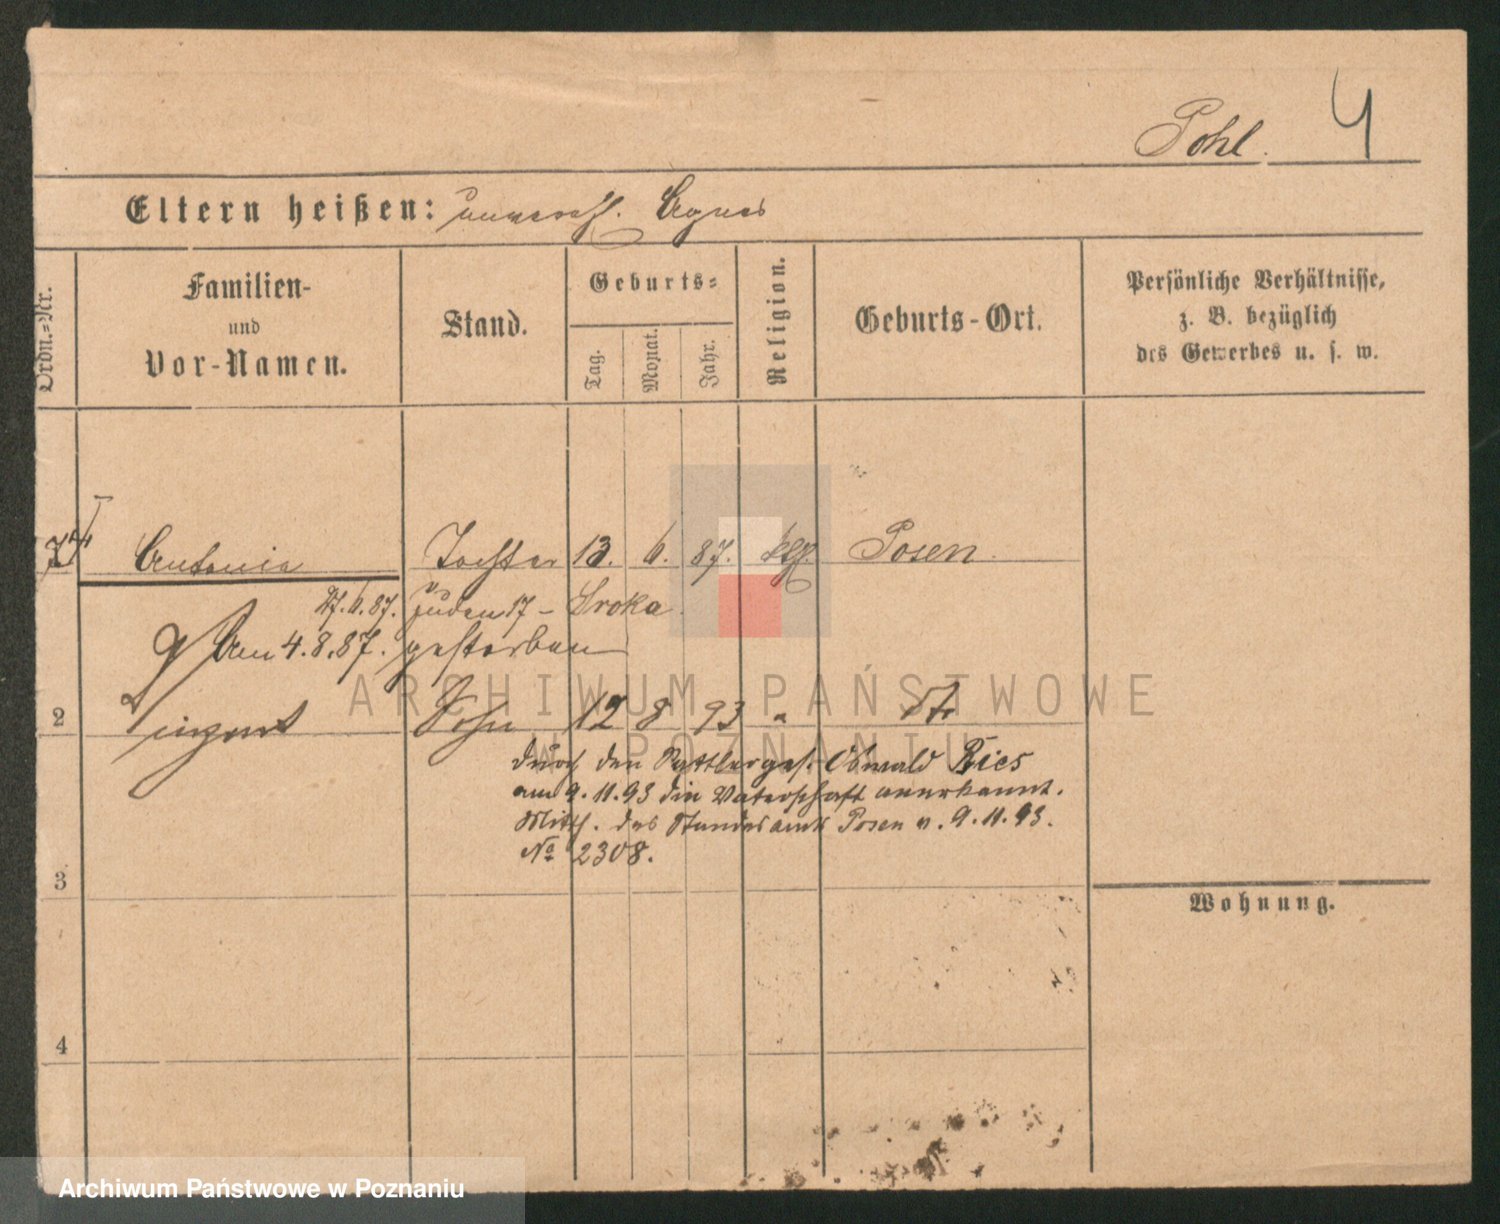 Pohl. 4
Eltern heißen: unverehl. Agnes
Ordn.-Nr.
Familien-
und
Vor-Namen.
Stand.
Geburts=
Tag.
Monat.
Jahr.
Religion.
Geburts-Ort.
Persönliche Verhältnisse,
z. B. bezüglich
des Gewerbes u. s. w.
Antonie Tochter 13. 6. 87. kth. Posen.
27. 6. 87. Juden 17 - Sroka.
Am 4.8.87. gestorben
2 Vinzent Sohn 12 8 93 " dto
durch den Sattlerges. Oswald Ries
am 9.11.93 die Vaterschaft anerkannt.
Mitth. des Standesamts Posen v. 9.11.93.
No 2308.
3
Wohnung.
4
ARCHIWUM PAŃSTWOWE
W POZNANIU
Archiwum Państwowe w Poznaniu